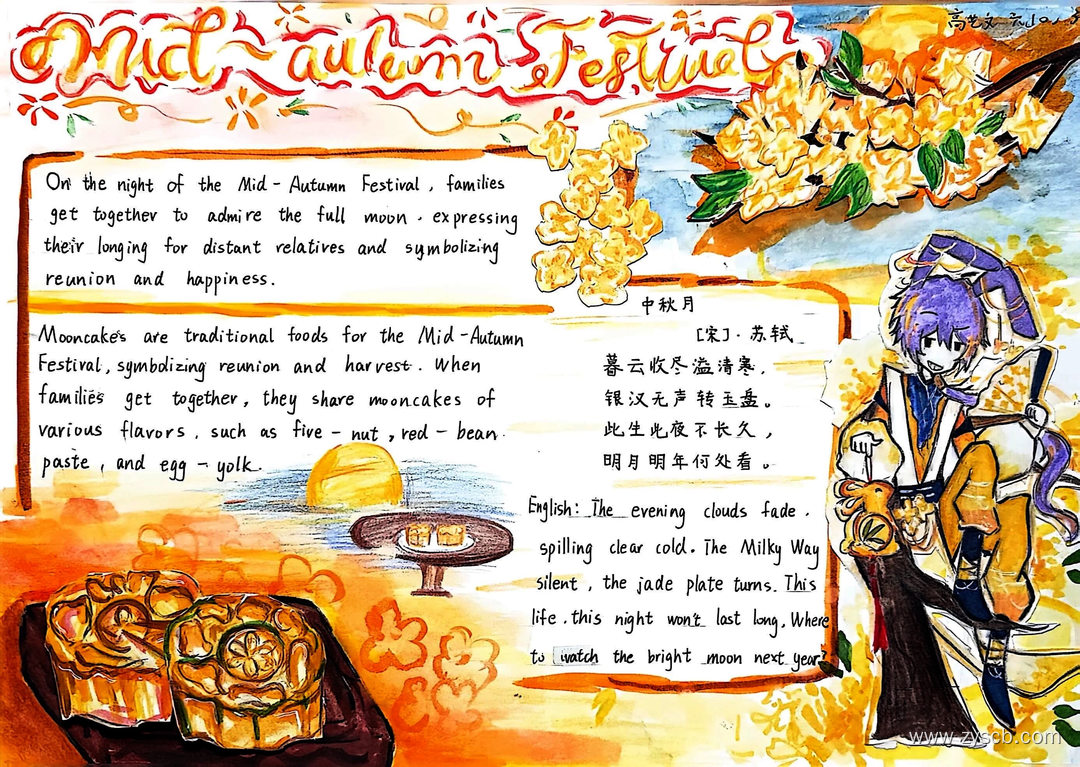 Mid-autumn Festival
On the night of the Mid-Autumn Festival, families
get together to admire the full moon, expressing
their longing for distant relatives and symbolizing
reunion and happiness.
Mooncakes are traditional foods for the Mid-Autumn
Festival, symbolizing reunion and harvest. When
families get together, they share mooncakes of
various flavors, such as five-nut, red-bean
paste, and egg-yolk.
中秋月
[宋]·苏轼
暮云收尽溢清寒,
银汉无声转玉盘。
此生此夜不长久,
明月明年何处看。
English: The evening clouds fade,
spilling clear cold. The Milky Way
silent, the jade plate turns. This
life, this night won't last long, Where
to watch the bright moon next year?
www.zyscb.com